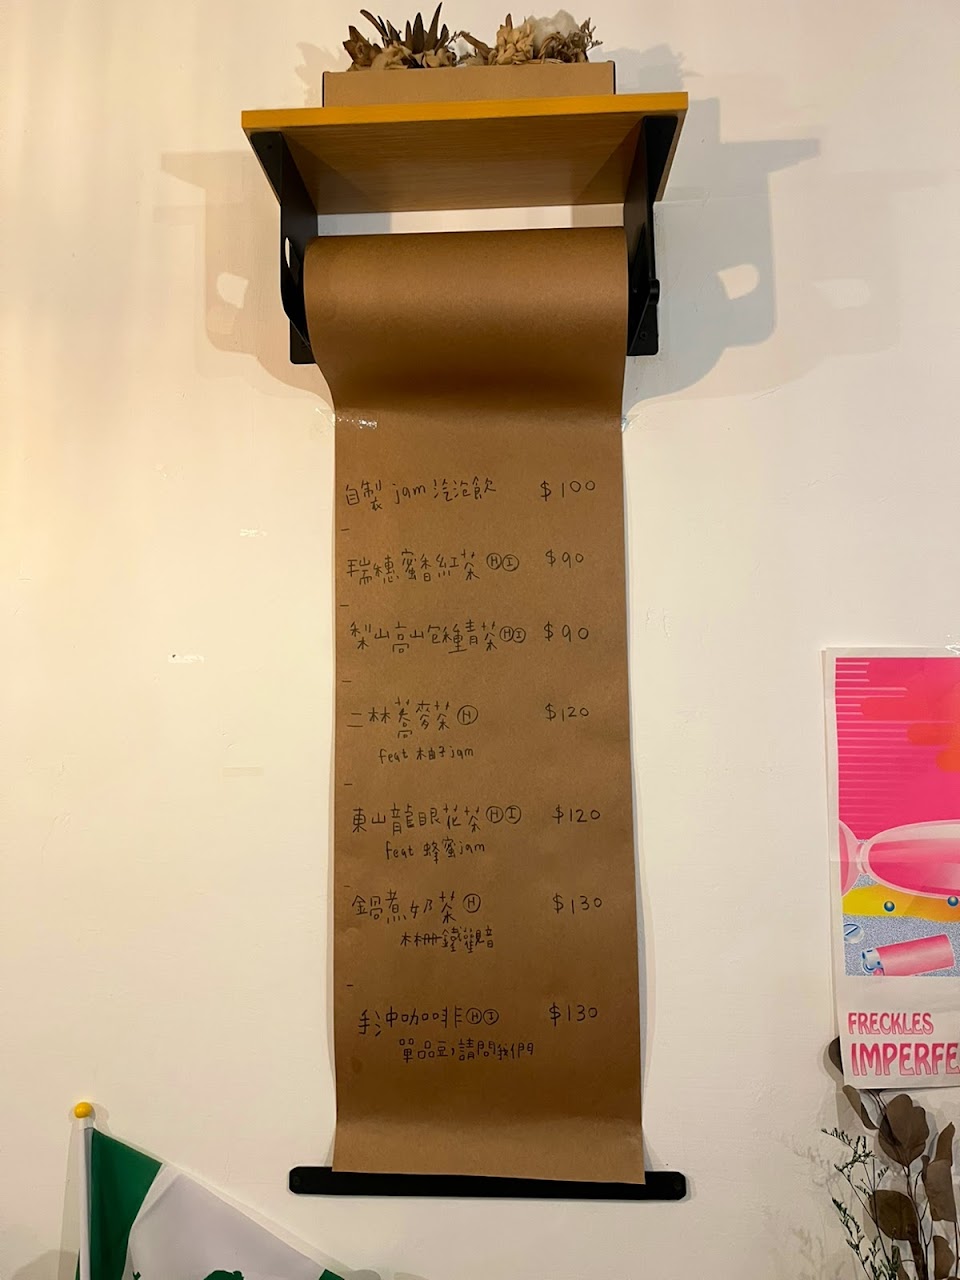 自製 jam 汽泡飲 $100
-
瑞穗蜜香紅茶 Ⓗ Ⓘ $90
-
梨山高山包種青茶 Ⓗ Ⓘ $90
-
二林蕎麥茶 Ⓗ $120
feat 柚子jam
-
東山龍眼花茶 Ⓗ Ⓘ $120
feat 蜂蜜jam
-
鍋煮奶茶 Ⓗ $130
木柵鐵觀音
-
手沖咖啡 Ⓗ Ⓘ $130
單品豆,請問我們
FRECKLES